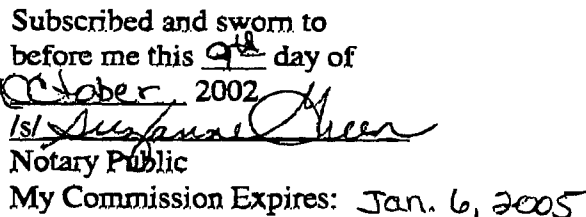 Subscribed and sworn to
before me this 9th day of
October, 2002
/s/ Suzanne Green
Notary Public
My Commission Expires: Jan. 6, 2005